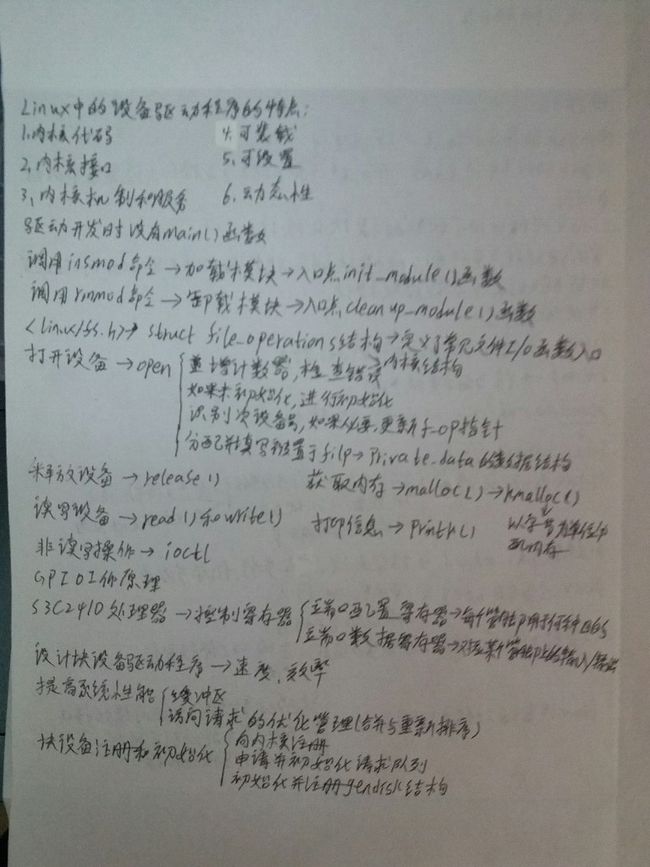 Linux中的设备驱动程序的特点：
1.内核代码 4.可装载
2.内核接口 5.可设置
3.内核机制和服务 6.动态性
驱动开发时没有main()函数
调用insmod命令→加载模块→入口点init_module()函数
调用rmmod命令→卸载模块→入口点cleanup_module()函数
<linux/fs.h>→struct file_operations结构→定义了常见文件I/O函数入口
打开设备→open
递增计数器,检查错误
内核结构
如果未初始化,进行初始化
识别次设备号,如果必要,更新f_op指针
分配并填写被置于filp→Private_data的数据结构
释放设备→release() 获取内存→malloc()→kmalloc()
读写设备→read()和write() 打印信息→Printk() 以字节为单位分配内存
非读写操作→ioctl
GPIO工作原理
S3C2410处理器→控制寄存器
端口配置寄存器→每个管脚用于何种目的
端口数据寄存器→对应某个管脚上的输入/输出
设计块设备驱动程序→速度、效率
提高系统性能
缓冲区
访问请求的优化管理(合并与重新排序)
块设备注册和初始化
向内核注册
申请并初始化请求队列
初始化并注册gendisk结构